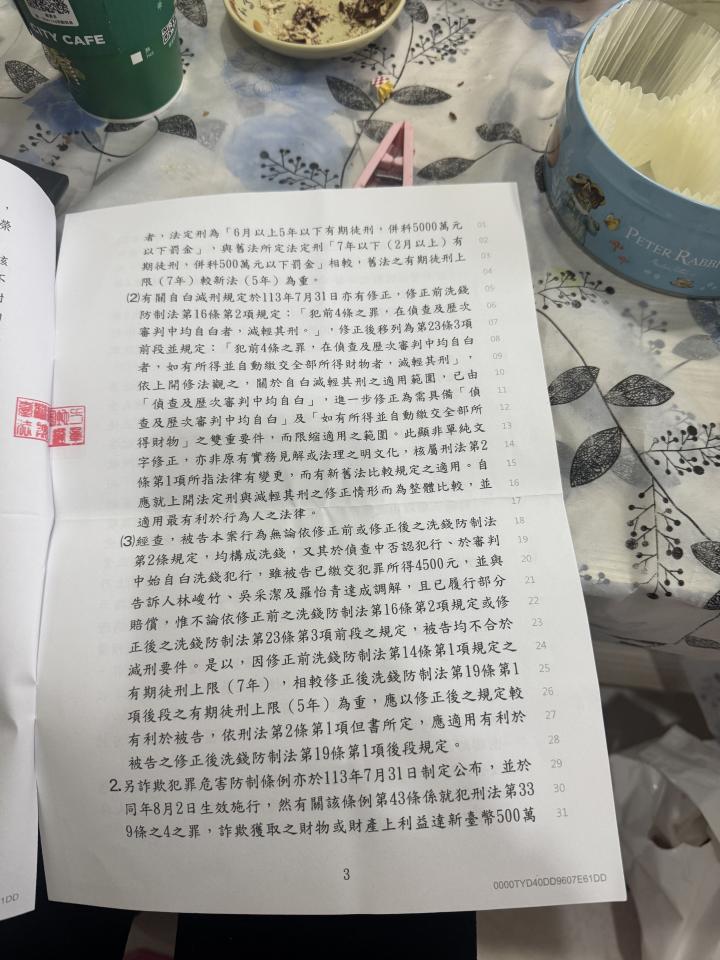 CITY CAFE
PETER RABBIT
榮
者，法定刑為「6月以上5年以下有期徒刑，併科5000萬元 01
以下罰金」，與舊法所定法定刑「7年以下（2月以上）有 02
期徒刑，併科500萬元以下罰金」相較，舊法之有期徒刑上 03
限（7年）較新法（5年）為重。 04
⑵有關自白減刑規定於113年7月31日亦有修正，修正前洗錢 05
防制法第16條第2項規定：「犯前4條之罪，在偵查及歷次 06
審判中均自白者，減輕其刑。」，修正後移列為第23條3項 07
前段並規定：「犯前4條之罪，在偵查及歷次審判中均自白 08
者，如有所得並自動繳交全部所得財物者，減輕其刑」， 09
依上開修法觀之，關於自白減輕其刑之適用範圍，已由 10
「偵查及歷次審判中均自白」，進一步修正為需具備「偵 11
查及歷次審判中均自白」及「如有所得並自動繳交全部所 12
得財物」之雙重要件，而限縮適用之範圍。此顯非單純文 13
字修正，亦非原有實務見解或法理之明文化，核屬刑法第2 14
條第1項所指法律有變更，而有新舊法比較規定之適用。自 15
應就上開法定刑與減輕其刑之修正情形而為整體比較，並 16
適用最有利於行為人之法律。 17
⑶經查，被告本案行為無論依修正前或修正後之洗錢防制法 18
第2條規定，均構成洗錢，又其於偵查中否認犯行、於審判 19
中始自白洗錢犯行，雖被告已繳交犯罪所得4500元，並與 20
告訴人林峻竹、吳采潔及羅怡青達成調解，且已履行部分 21
賠償，惟不論依修正前之洗錢防制法第16條第2項規定或修 22
正後之洗錢防制法第23條第3項前段之規定，被告均不合於 23
減刑要件。是以，因修正前洗錢防制法第14條第1項規定之 24
有期徒刑上限（7年），相較修正後洗錢防制法第19條第1 25
項後段之有期徒刑上限（5年）為重，應以修正後之規定較 26
有利於被告，依刑法第2條第1項但書所定，應適用有利於 27
被告之修正後洗錢防制法第19條第1項後段規定。 28
2.另詐欺犯罪危害防制條例亦於113年7月31日制定公布，並於 29
同年8月2日生效施行，然有關該條例第43條係就犯刑法第33 30
9條之4之罪，詐欺獲取之財物或財產上利益達新臺幣500萬 31
3
0000TYD40DD9607E61DD
1DD